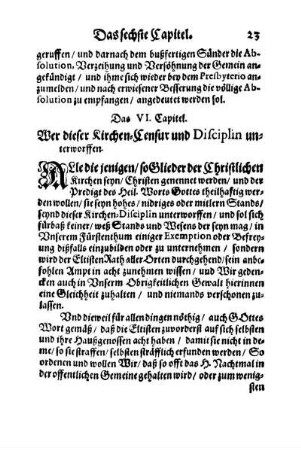 Das sechste Capitel. 23
geruffen / und darnach dem bußfertigen Sünder die Ab-
solution, Verzeihung und Versöhnung der Gemein an-
gekündigt / und ihme sich wieder bey dem Presbyterio an-
zumelden / und nach erwiesener Besserung die völlige Ab-
solution zu empfangen / angedeutet werden sol.
Das VI. Capitel.
Wer dieser Kirchen-Censur und Disciplin un-
terworffen.
ALle die jenigen / so Glieder der Christlichen
Kirchen seyn / Christen genennet werden / und der
Predigt des Heil. Worts Gottes theilhafftig wer-
den wollen / sie seyn hohes / nidriges oder mitlern Stands /
seynd dieser Kirchen-Disciplin unterworffen / und sol sich
fürbaß keiner / weß Stands und Wesens der seyn mag / in
Unserem Fürstenthum einiger Exemption oder Befrey-
ung dißfalls einzubilden oder zu unternehmen / sondern
wird der Eltisten Rath aller Orten durchgehend / sein anbe-
fohlen Ampt in acht zunehmen wissen / und Wir geden-
cken auch in Unserm Obrigkeitlichen Gewalt hierinnen
eine Gleichheit zuhalten / und niemands verschonen zu-
lassen.
Und dieweil für allen dingen nöthig / auch GOttes
Wort gemäß / daß die Eltisten zuvorderst auf sich selbsten
und ihre Haußgenossen acht haben / damit sie nicht in de-
me / so sie straffen / selbsten sträfflich erfunden werden / So
ordenen und wollen Wir / daß so offt das H. Nachtmal in
der öffentlichen Gemeine gehalten wird / oder zum wenig-
sten